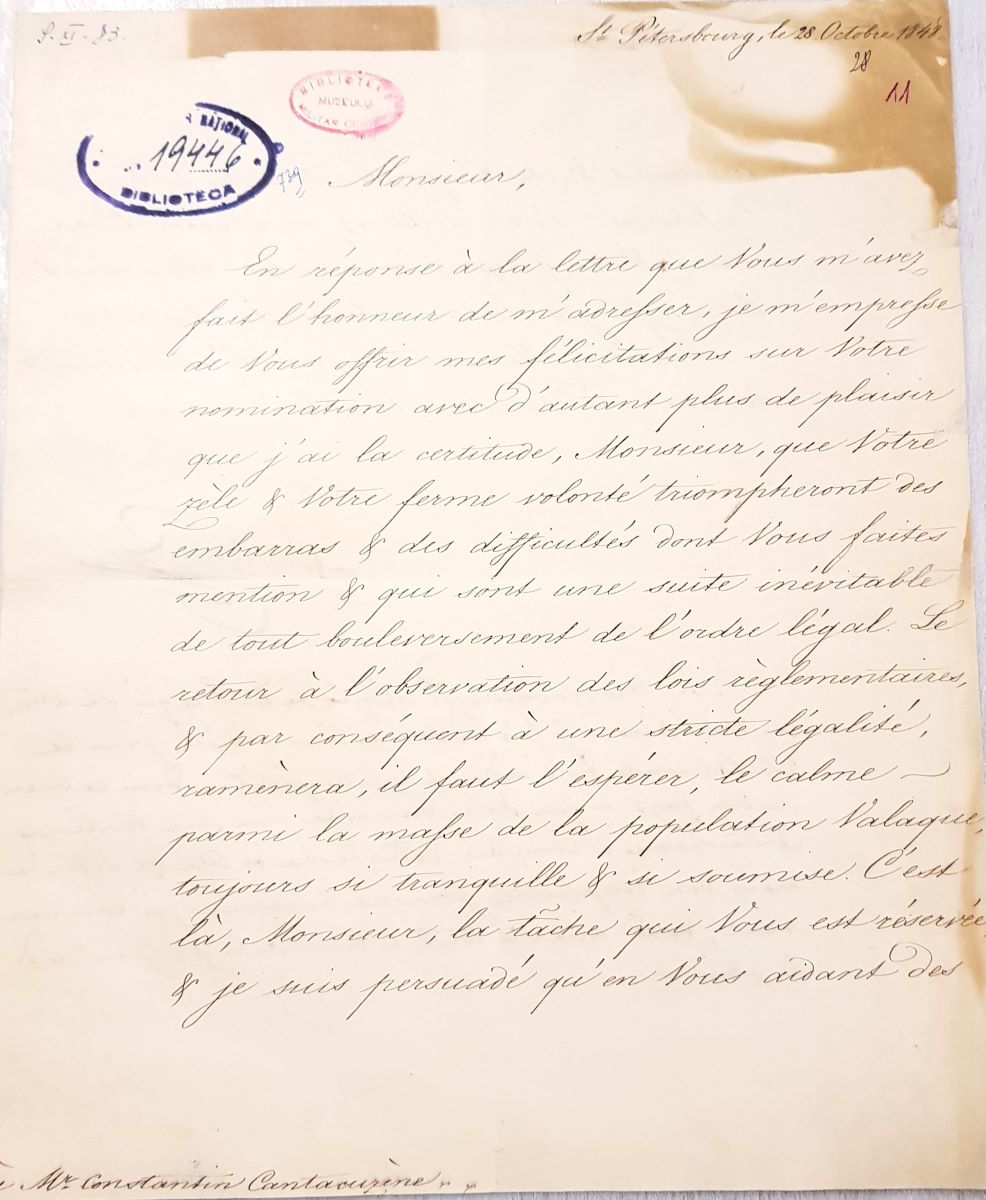 S. XI. 83.
St Pétersbourg, le 28 Octobre 1848
28
11
BIBLIOTECA
MUZEULUI
MILITAR
NAȚIONAL
19446
BIBLIOTECA
739
Monsieur,
En réponse à la lettre que Vous m'avez
fait l'honneur de m'adresser, je m'empresse
de Vous offrir mes félicitations sur Votre
nomination avec d'autant plus de plaisir
que j'ai la certitude, Monsieur, que Votre
zèle & Votre ferme volonté triompheront des
embarras & des difficultés dont Vous faites
mention & qui sont une suite inévitable
de tout bouleversement de l'ordre légal. Le
retour à l'observation des lois règlementaires,
& par conséquent à une stricte légalité,
ramènera, il faut l'espérer, le calme
parmi la masse de la population Valaque,
toujours si tranquille & si soumise. C'est
là, Monsieur, la tâche qui Vous est réservée,
& je suis persuadé qu'en Vous aidant des
à Mr. Constantin Cantacuzène.